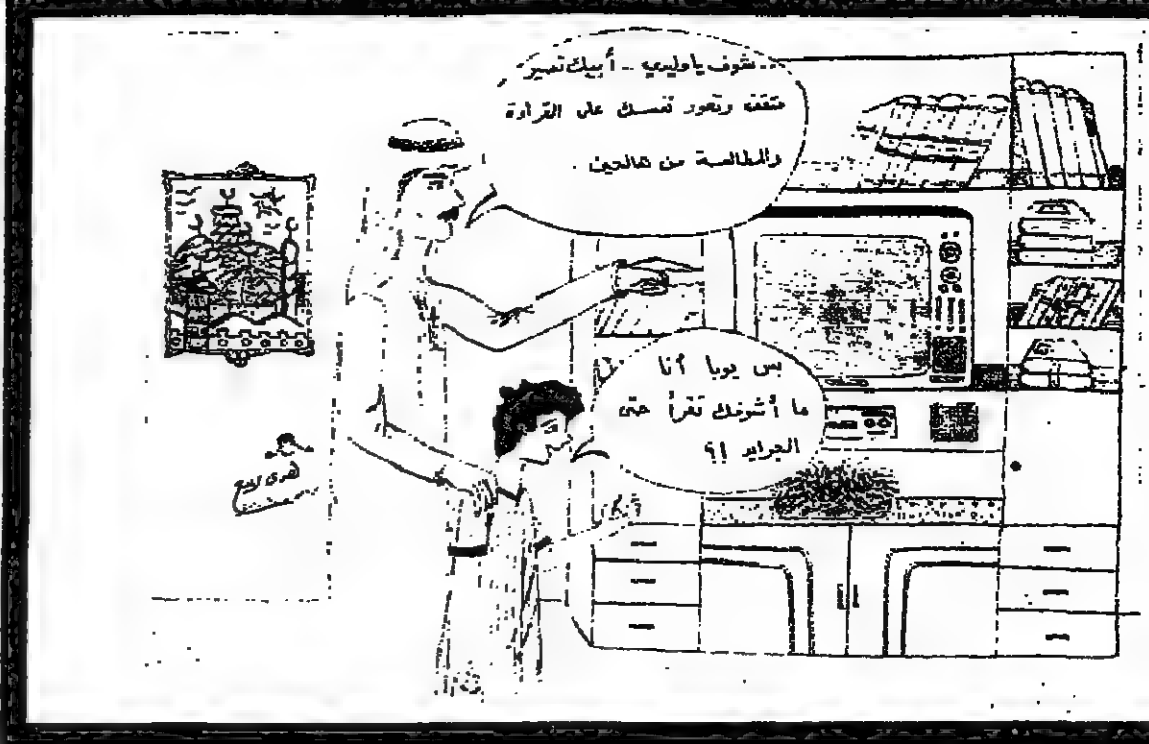 .. شوف ياوليدي .. أبيك تصير
مثقف وتعود نفسك على القراءة
والمطالعة من هالحين .
بس يوبا أنا
ما أشوفك تقرأ حتى
الجرايد !؟
هدى